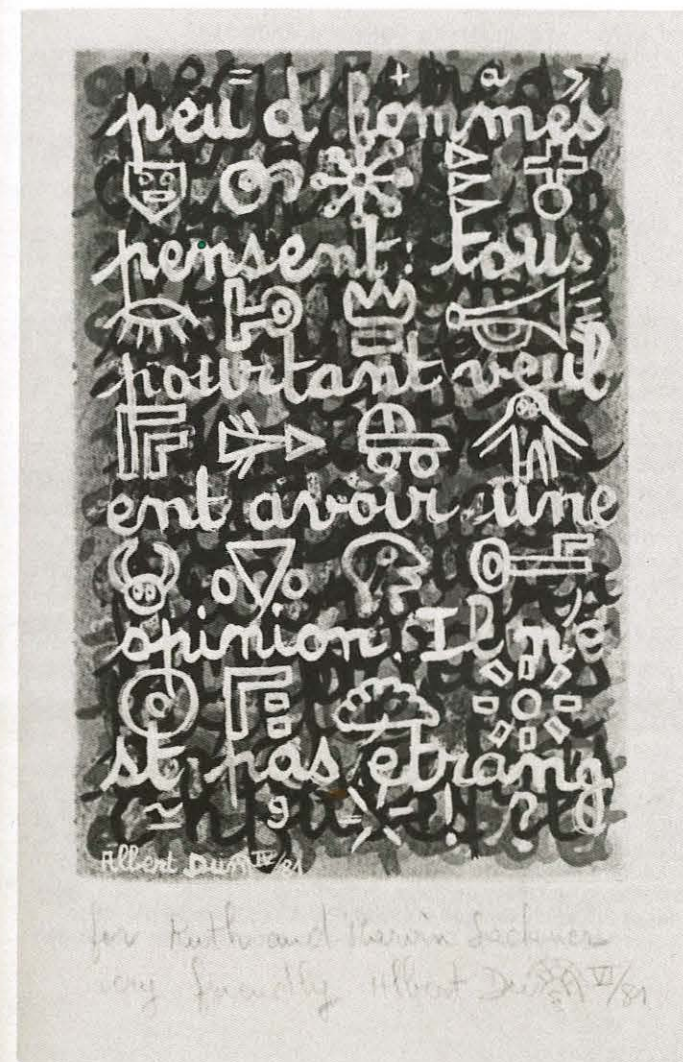 = + a »
peu d'hommes
pensent: tous
pourtant veul
ent avoir une
opinion. Il n'e
st pas étrang
g = ! ?
Albert Dum IV/81
for Ruth and Marvin Sackner
very friendly Albert VI/81